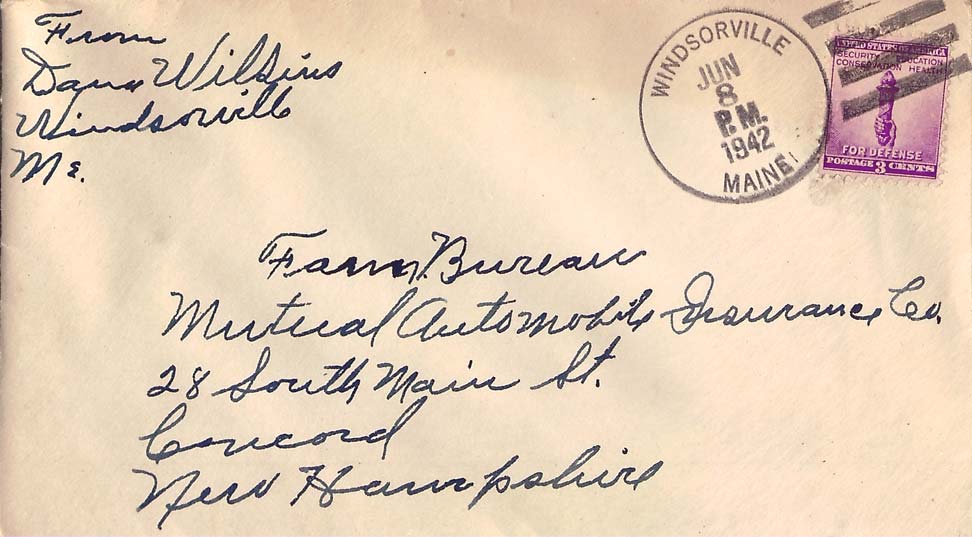 From
Dana Wilkins
Windsorville
Me.
WINDSORVILLE
JUN
8
P.M.
1942
MAINE
UNITED STATES OF AMERICA
SECURITY EDUCATION
CONSERVATION HEALTH
FOR DEFENSE
POSTAGE 3 CENTS
Farm Bureau
Mutual Automobile Insurance Co.
28 South Main St.
Concord
New Hampshire